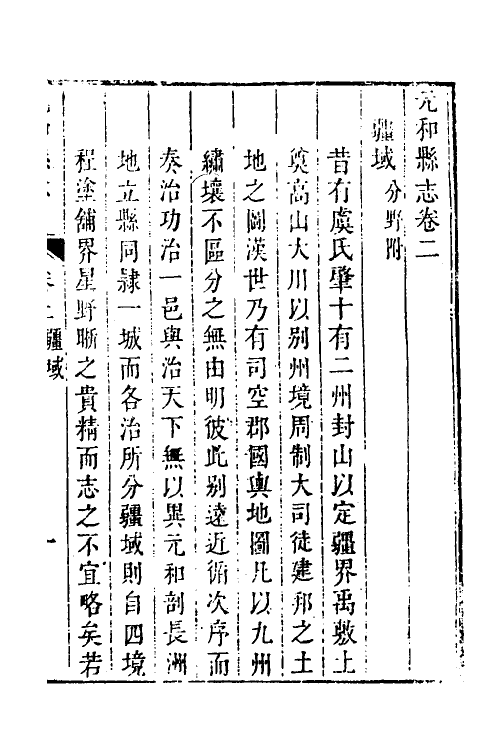 元和縣志卷二
疆域 分野附
昔有虞氏肇十有二州封山以定疆界禹敷土
奠高山大川以别州境周制大司徒建邦之土
地之圖漢世乃有司空郡國輿地圖凡以九州
繡壤不區分之無由明彼此别遠近循次序而
奏治功治一邑與治天下無以異元和剖長洲
地立縣同隷一城而各治所分疆域則自四境
程塗舖界星野晰之貴精而志之不宜略矣若
疆域
一